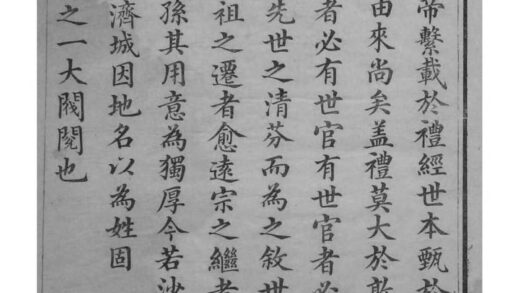 帝繫載於禮經世本甄於
由來尚矣盖禮莫大於
者必有世官有世官者必
先世之清芬而為之敘世
祖之遷者愈遠宗之繼者
孫其用意為獨厚今若沙
濟城因地名以為姓固
之一大閥閱也